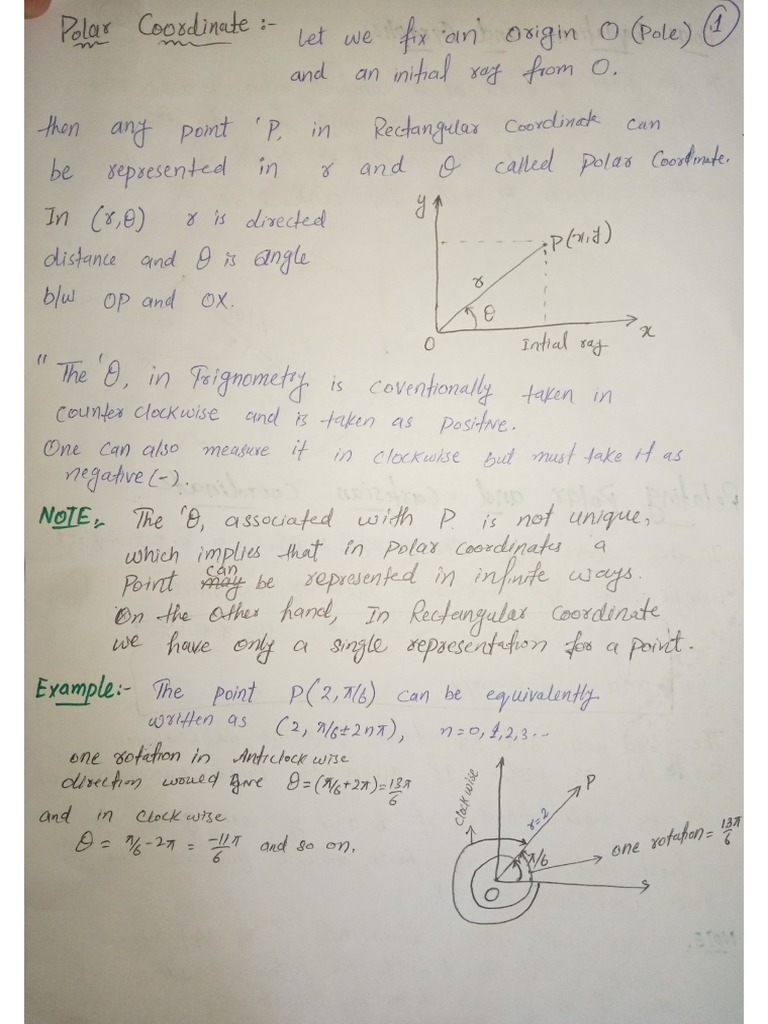 Polar Coordinate :- Let we fix an origin O (Pole) 1
and an initial ray from O.
then any point 'P, in Rectangular Coordinate can
be represented in r and θ called Polar Coordinate.
In (r,θ) r is directed
distance and θ is angle
b/w OP and OX.
y
P(x,y)
r
θ
O
Intial ray
x
"The 'θ, in Trignometry is coventionally taken in
counter clockwise and is taken as positive.
One can also measure it in clockwise but must take it as
negative (-).
NOTE:- The 'θ, associated with P. is not unique,
which implies that in Polar coordinates a
Point can be represented in infinite ways.
On the other hand, In Rectangular Coordinate
we have only a single representation for a point.
Example:- The point P(2, π/6) can be equivalently
written as (2, π/6±2nπ), n=0,1,2,3...
one rotation in Anticlockwise
direction would give θ=(π/6+2π)=13π/6
and in clockwise
θ = π/6-2π = -11π/6 and so on.
Clockwise
P
r=2
π/6
one rotation = 13π/6
O